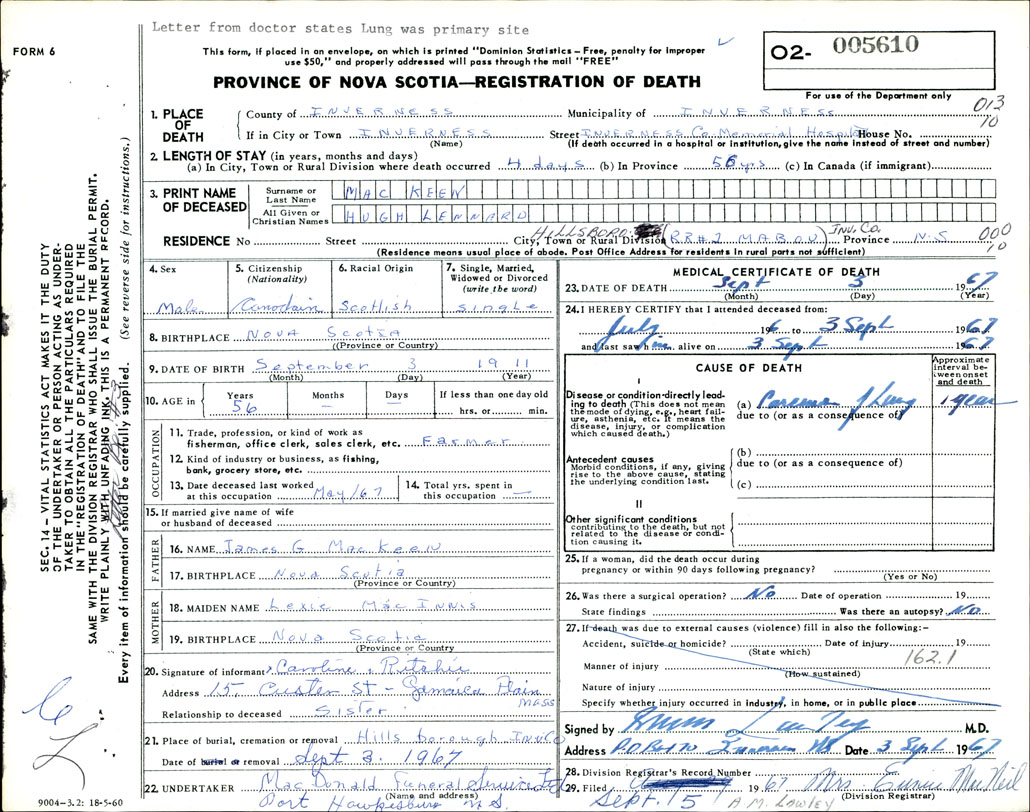 Letter from doctor states Lung was primary site
FORM 6
This form, if placed in an envelope, on which is printed "Dominion Statistics – Free, penalty for improper
use $50," and properly addressed will pass through the mail "FREE"
O2- 005610
PROVINCE OF NOVA SCOTIA—REGISTRATION OF DEATH
For use of the Department only
013
10
1. PLACE OF DEATH
County of INVERNESS Municipality of INVERNESS
If in City or Town INVERNESS Street INVERNESS Co. Memorial Hospital House No.
(Name) (If death occurred in a hospital or institution, give the name instead of street and number)
2. LENGTH OF STAY (in years, months and days)
(a) In City, Town or Rural Division where death occurred 4 days (b) In Province 56 yrs (c) In Canada (if immigrant)
3. PRINT NAME OF DECEASED
Surname or Last Name MAC KEEN
All Given or Christian Names HUGH LENNARD
RESIDENCE No Street City, Town or Rural Division HILLSBORO (RR#2 MABOU) Inv. Co. Province N.S
000
10
(Residence means usual place of abode. Post Office Address for residents in rural parts not sufficient)
4. Sex
Male
5. Citizenship
(Nationality)
Canadain
6. Racial Origin
Scotlish
7. Single, Married,
Widowed or Divorced
(write the word)
single
8. BIRTHPLACE Nova Scotia
(Province or Country)
9. DATE OF BIRTH September 3 1911
(Month) (Day) (Year)
10. AGE in
Years 56
Months –
Days –
If less than one day old
hrs. or min.
OCCUPATION
11. Trade, profession, or kind of work as
fisherman, office clerk, sales clerk, etc. Farmer
12. Kind of industry or business, as fishing,
bank, grocery store, etc.
13. Date deceased last worked
at this occupation May/67
14. Total yrs. spent in
this occupation —
15. If married give name of wife
or husband of deceased
FATHER
16. NAME James G MacKeen
17. BIRTHPLACE Nova Scotia
(Province or Country)
MOTHER
18. MAIDEN NAME Lexie Mac Innis
19. BIRTHPLACE Nova Scotia
(Province or Country
20. Signature of informant Caroline Ritchie
Address 15 Custer St – Jamaica Plain
Mass
Relationship to deceased Sister
21. Place of burial, cremation or removal Hillsborough Inv Co
Date of burial or removal Sept 3. 1967
22. UNDERTAKER MacDonald Funeral Service Ltd
(Name and address)
Port Hawkesbury N.S.
MEDICAL CERTIFICATE OF DEATH
23. DATE OF DEATH Sept 3 1967
(Month) (Day) (Year)
24. I HEREBY CERTIFY that I attended deceased from:
July 196 to 3 Sept 1967
and last saw him alive on 3 Sept 1967
CAUSE OF DEATH
Approximate
interval be-
tween onset
and death
I
Disease or condition directly lead-
ing to death (This does not mean
the mode of dying, e.g., heart fail-
ure, asthenia, etc. It means the
disease, injury, or complication
which caused death.)
(a) Carcinoma of Lung 1 year
due to (or as a consequence of)
Antecedent causes
Morbid conditions, if any, giving
rise to the above cause, stating
the underlying condition last.
(b)
due to (or as a consequence of)
(c)
II
Other significant conditions
contributing to the death, but not
related to the disease or condi-
tion causing it.
25. If a woman, did the death occur during
pregnancy or within 90 days following pregnancy?
(Yes or No)
26. Was there a surgical operation? No Date of operation 19
State findings Was there an autopsy? No
27. If death was due to external causes (violence) fill in also the following:–
Accident, suicide or homicide? Date of injury 19
(State which)
162.1
Manner of injury
(How sustained)
Nature of injury
Specify whether injury occurred in industry, in home, or in public place
Signed by M.D.
Address P.O Box Inverness NS Date 3 Sept 1967
28. Division Registrar's Record Number
29. Filed Sept. 15 1967 Mrs Eunice MacNeil
(Division Registrar)
A M. LAWLEY
9004–3.2: 18-5-60
SEC. 14 – VITAL STATISTICS ACT MAKES IT THE DUTY
OF THE UNDERTAKER OR PERSON ACTING AS UNDER-
TAKER TO OBTAIN ALL THE PARTICULARS REQUIRED
IN THE "REGISTRATION OF DEATH" AND TO FILE THE
SAME WITH THE DIVISION REGISTRAR WHO SHALL ISSUE THE BURIAL PERMIT.
WRITE PLAINLY WITH UNFADING INK. THIS IS A PERMANENT RECORD.
Every item of information should be carefully supplied. (See reverse side for instructions.)